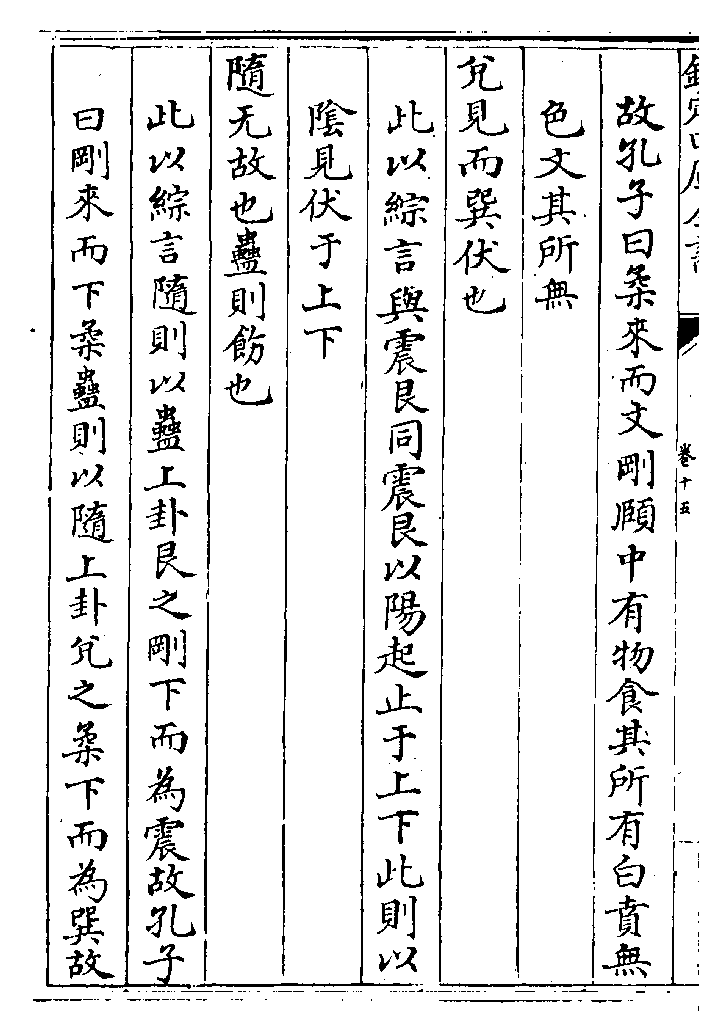 欽定四庫全書
卷十五
故孔子曰柔來而文剛頤中有物食其所有白賁無
色文其所無
兌見而巽伏也
此以綜言與震艮同震艮以陽起止于上下此則以
陰見伏于上下
隨无故也蠱則飭也
此以綜言隨則以蠱上卦艮之剛下而為震故孔子
曰剛來而下柔蠱則以隨上卦兌之柔下而為巽故